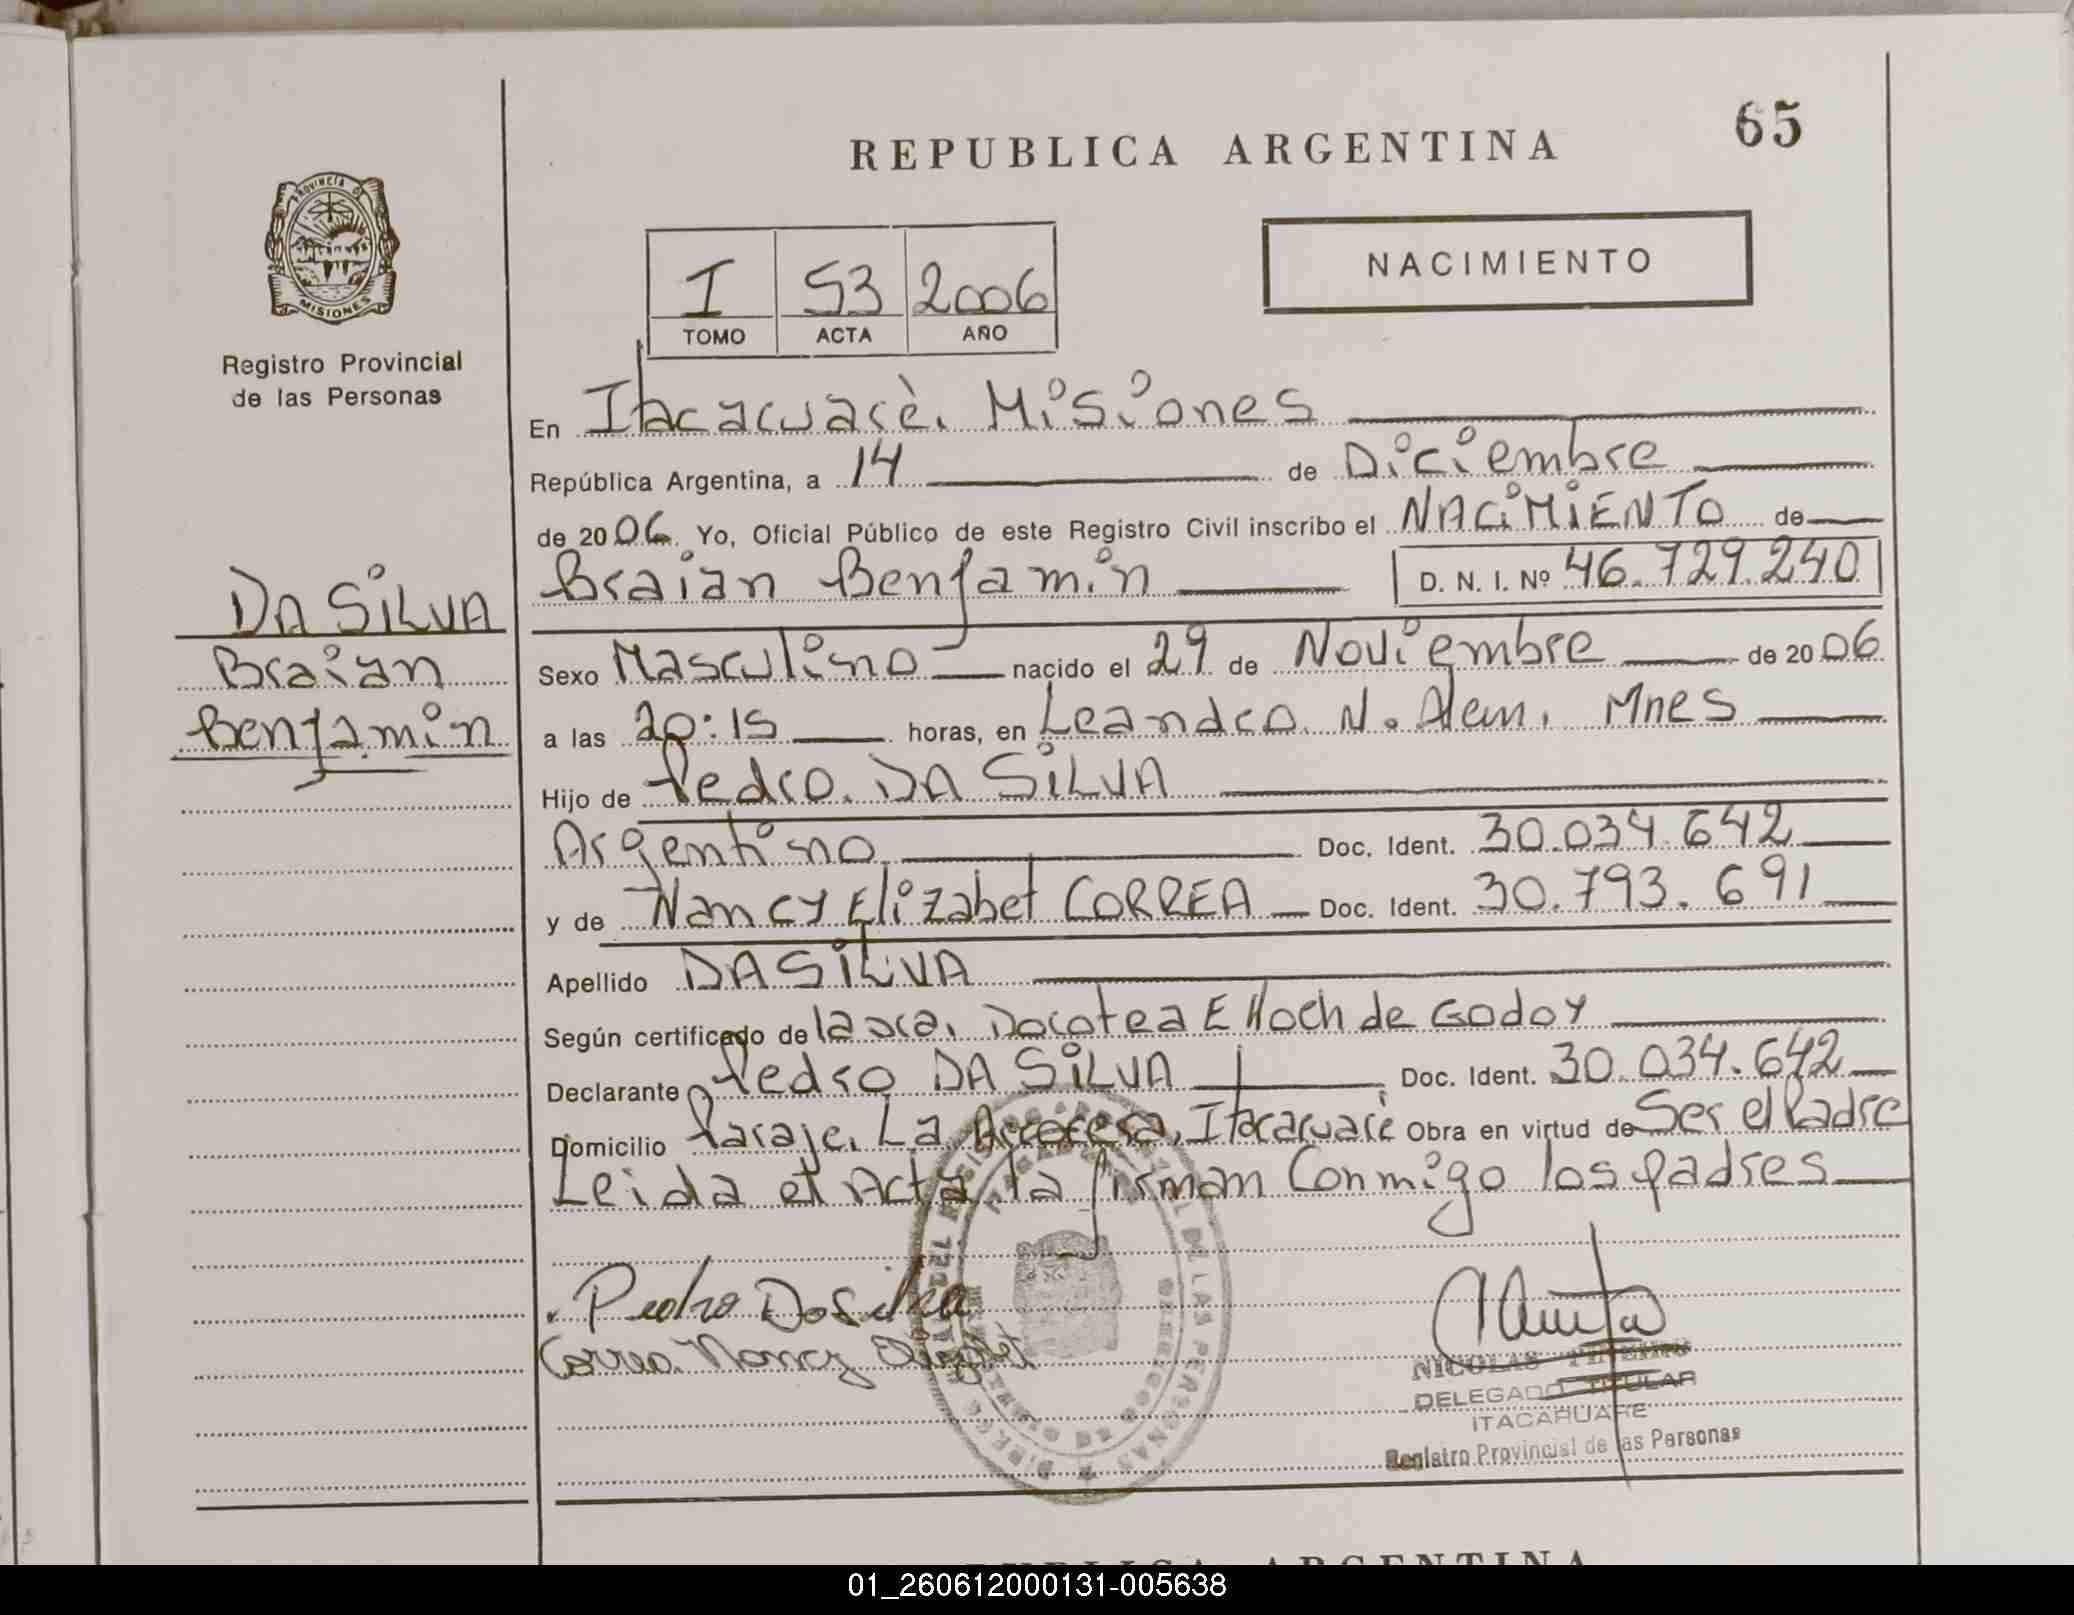 REPUBLICA ARGENTINA
65
PROVINCIA DE
MISIONES
Registro Provincial
de las Personas
I 53 2006
TOMO ACTA AÑO
NACIMIENTO
En Itacacuarè. Misiones
República Argentina, a 14 de Diciembre
de 2006. Yo, Oficial Público de este Registro Civil inscribo el NACIMIENTO de
Braian Benjamin D. N. I. Nº 46.729.240
DA SILVA
Braian
Benjamin
Sexo Masculino nacido el 29 de Noviembre de 2006
a las 20:15 horas, en Leandro. N. Alem. Mnes
Hijo de Pedro. DA SILVA
Argentino Doc. Ident. 30.034.642
y de Nancy Elizabet CORREA Doc. Ident. 30.793.691
Apellido DA SILVA
Según certificado de la Dorotea E Hoch de GODOY
Declarante Pedro DA SILVA Doc. Ident. 30.034.642
Domicilio Paraje. La Itacaruarè Obra en virtud de Ser el Padre
Leida el Acta la firman Conmigo los padres
Pedro Da Silva
Correa Nancy Elizabet
NICOLAS
DELEGADO TITULAR
ITACARUARE
Registro Provincial de las Personas
REPUBLICA ARGENTINA
01_260612000131-005638